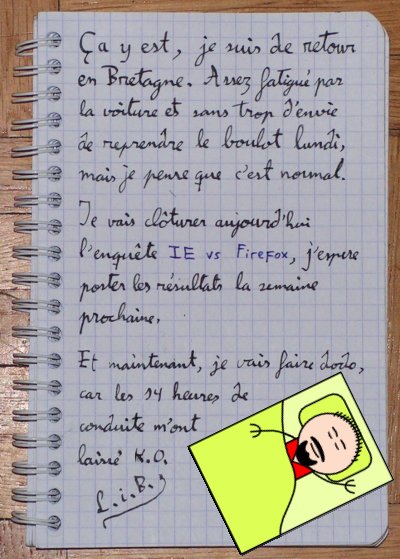 Ça y est, je suis de retour
en Bretagne. Assez fatigué par
la voiture et sans trop d'envie
de reprendre le boulot lundi,
mais je pense que c'est normal.
Je vais clôturer aujourd'hui
l'enquête IE vs Firefox, j'espere
poster les résultats la semaine
prochaine.
Et maintenant, je vais faire dodo,
car les 14 heures de
conduite m'ont
laissé K.O.
L.i.B.